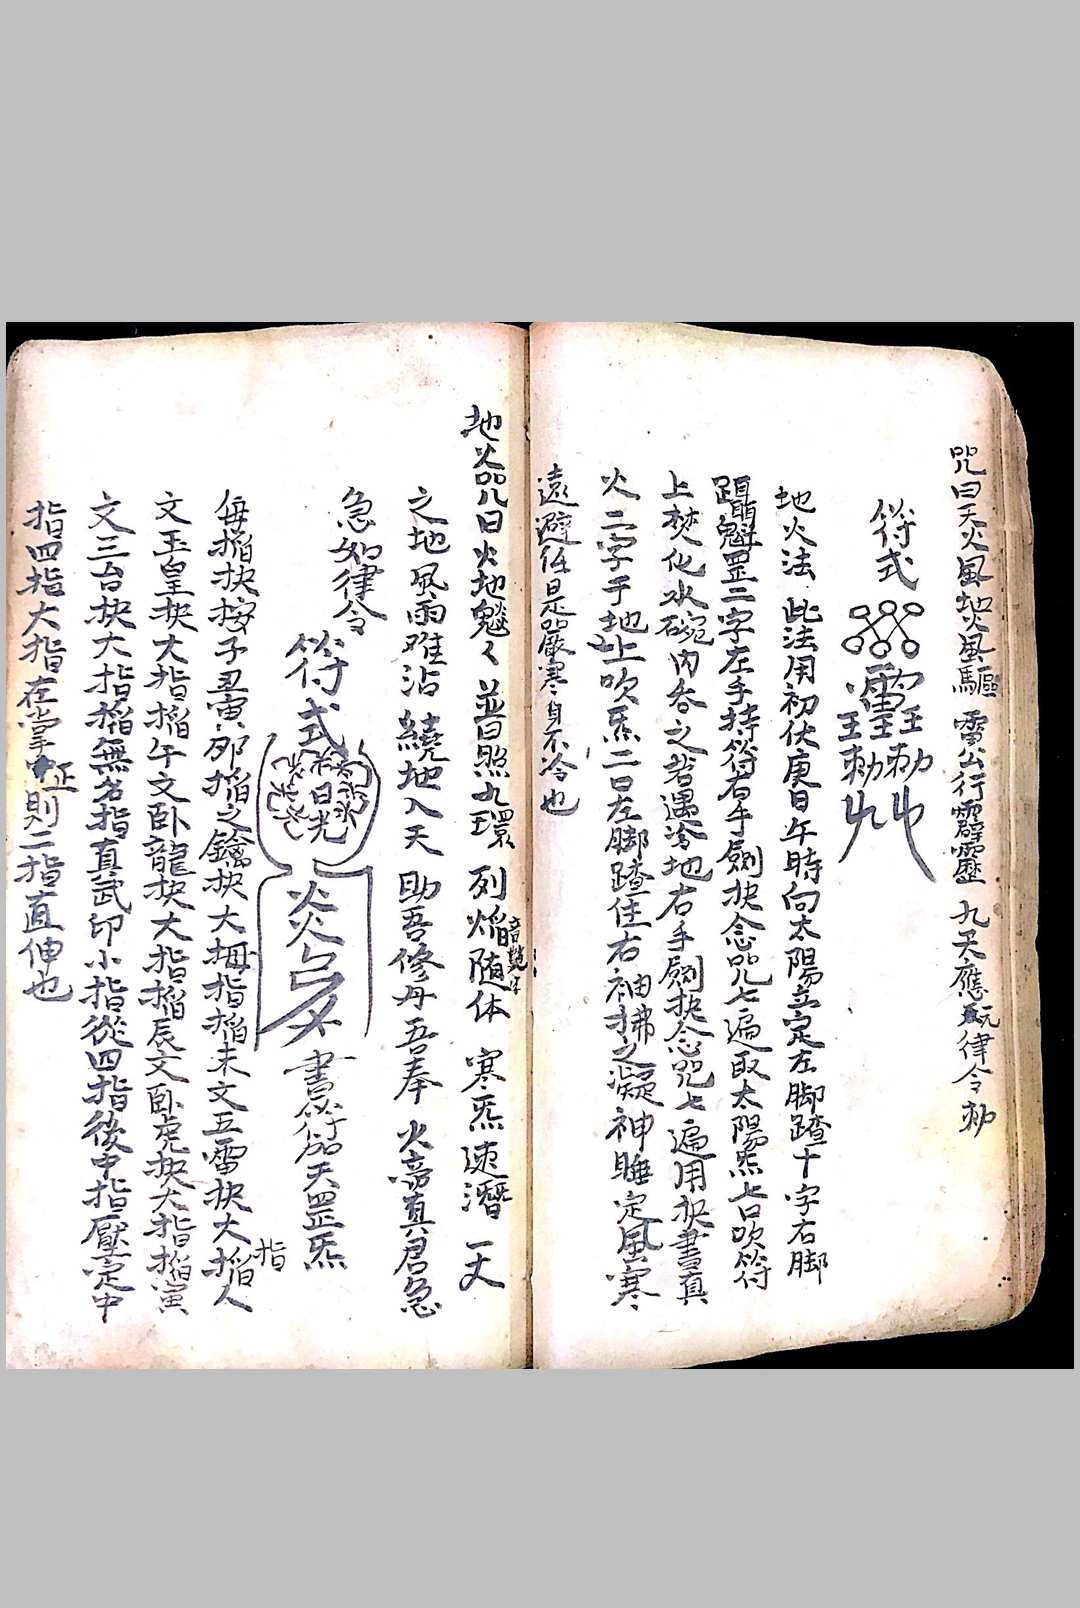 咒曰天火風地火風驅 雷公行霹靂 九天應 律令勅
符式 雷 王王王 勅勅
地火法 此法用初伏庚日午時向太陽立定左脚踏十字右脚
躡魁罡二字左手持符右手劍抉念咒七遍取太陽炁七口吹符
上焚化水碗內吞之若遇冷地右手劍抉念咒七遍用抉畫真
火二字于地上吹炁二口左脚踏住右袖拂之凝神睡定風寒
遠避任是嚴寒身不冷也
地火咒曰火地魁〻 普照九環 列焰随体 寒炁速潛 一丈
之地風雨难沾 繞地入天 助吾修丹吾奉 火帝真君急
急如律令
符式 日光 炎 書符仍天罡炁
每搯抉按子丑寅夘搯之鑰抉大拇指搯未文五雷抉大指搯人
文玉皇抉大指搯午文卧龍抉大指搯辰文卧虎抉大指搯寅
文三台抉大指搯無名指真武印小指從四指後中指壓定中
指四指大指在掌中正則二指直伸也